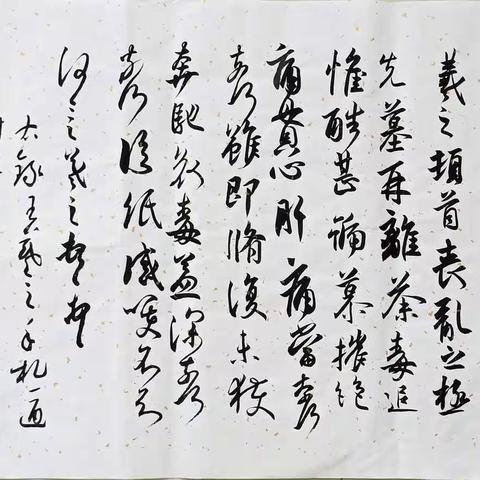 羲之頓首喪亂之極
先墓再離荼毒追
惟酷甚號慕摧絕
痛貫心肝痛當奈何
奈何雖即脩復未獲
奔馳哀毒益深奈何
奈何臨紙感哽不知
何言羲之頓首頓首
右錄王羲之手札一通